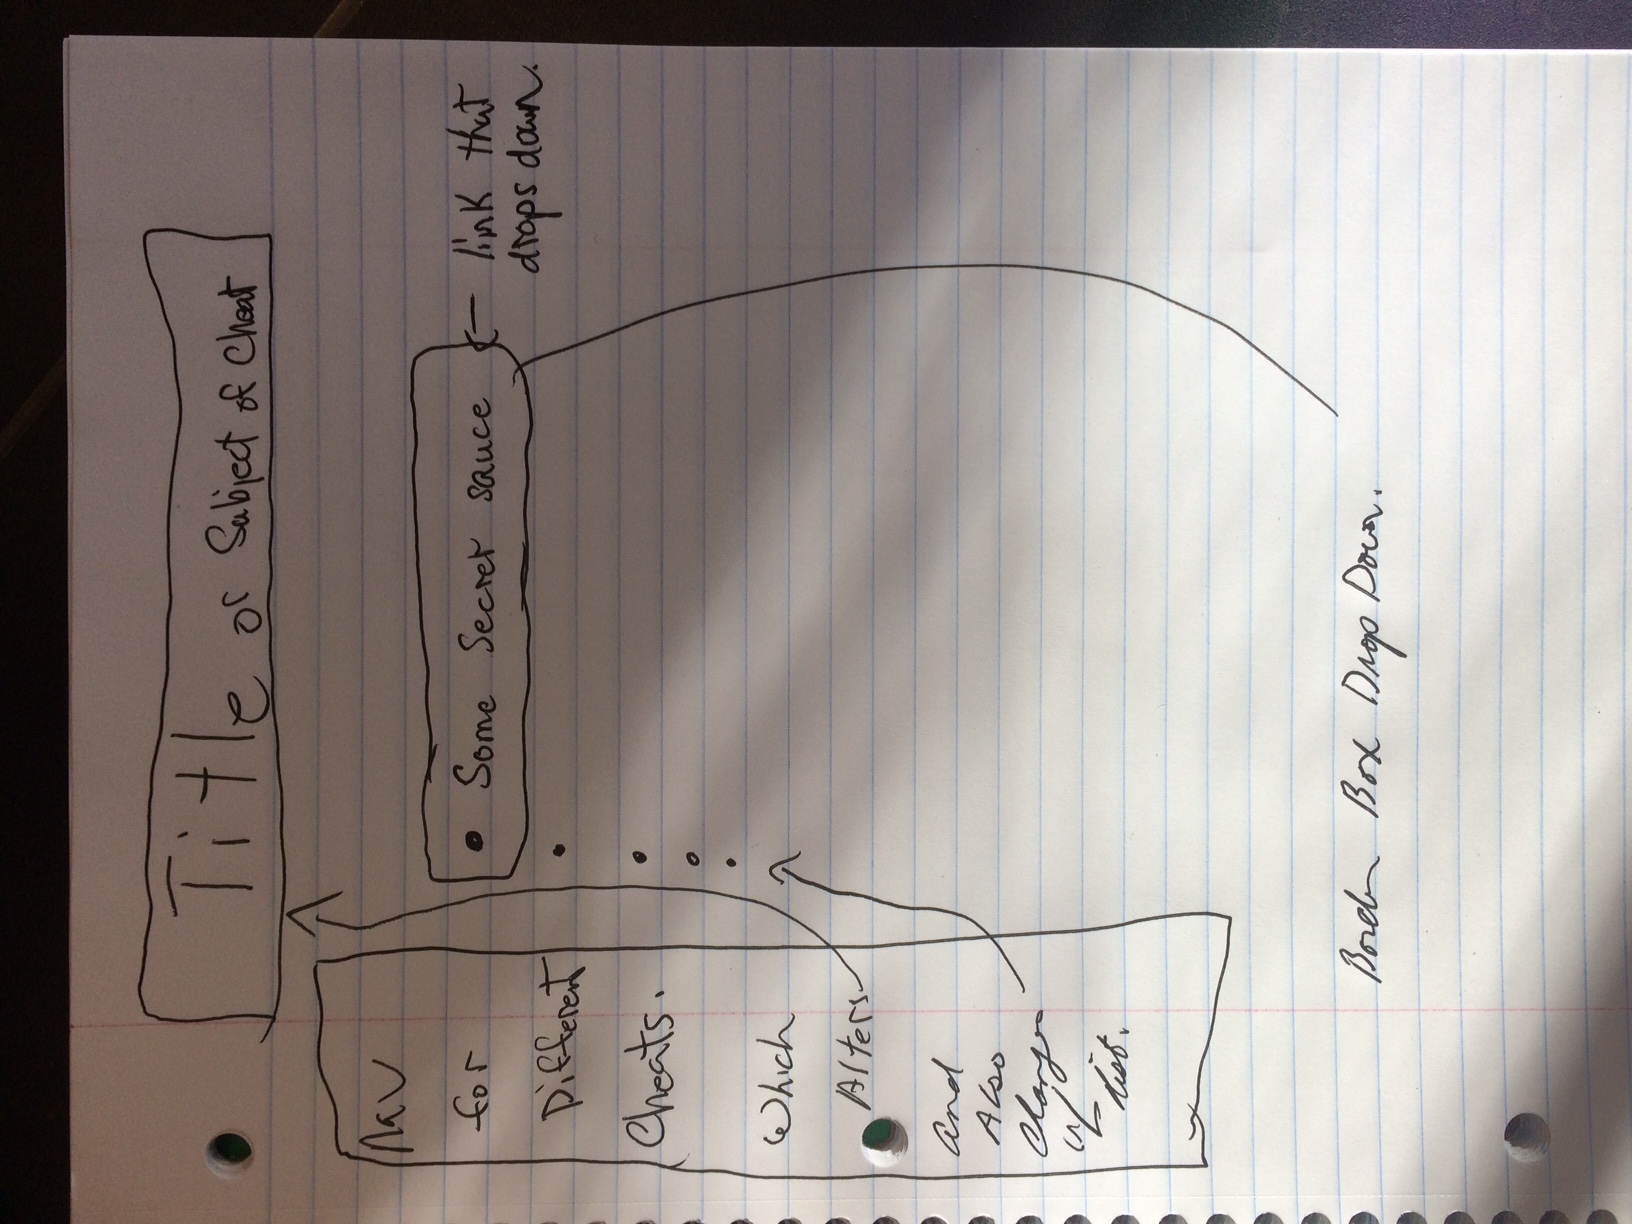 Title or Subject of Cheat
Nav
for
Different
Cheats.
Which
Alters
and
Also
Changes
w/
list.
• Some Secret sauce
link that
drops down.
•
•
•
•
Border Box Drop Down.